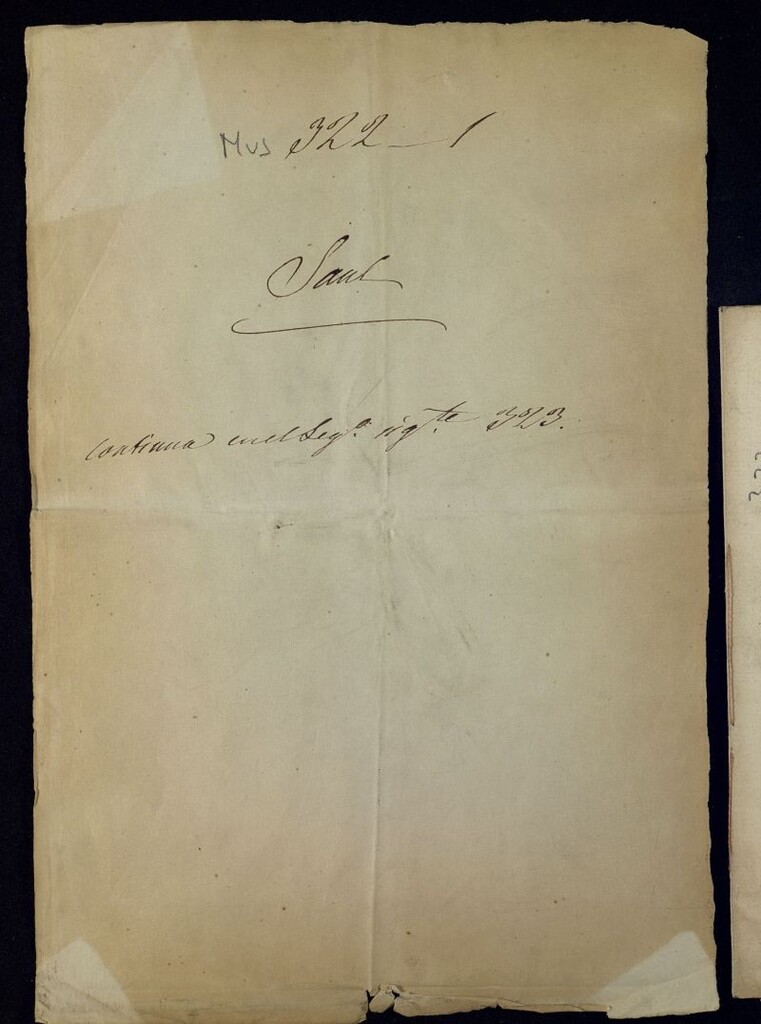 Mus 322 - 1
Saul
Continua en el Leg.º sig.te 323.